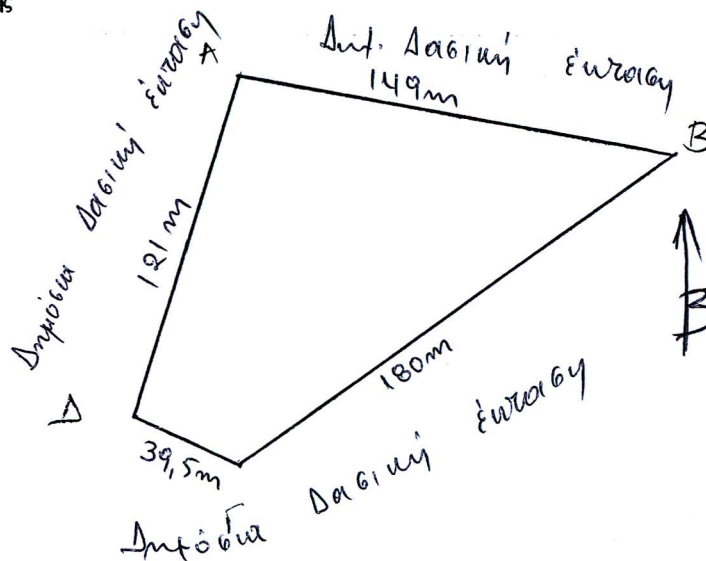 Δημ. Δασική έκταση
A
149m
B
Δημόσια Δασική έκταση
121m
B
180m
Δ
39,5m
Γ
Δημόσια Δασική έκταση